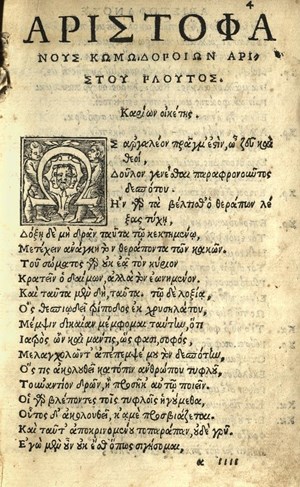 4
ΑΡΙΣΤΟΦΑ
ΝΟΥΣ ΚΩΜΩΔΟΡΟΙΩΝ ΑΡΙ-
ΣΤΟΥ ΡΛΟΥΤΟΣ.
Καρίων οἰκέτης.
ΩΣ ἀργαλέον πρᾶγμ' ἐστὶν, ὦ ζεῦ καὶ
θεοὶ,
Δοῦλον γενέσθαι παραφρονοῦντος
δεσπότου.
Ην γὰρ τὰ βέλτισθ' ὁ θεράπων λέ
ξας τύχῃ,
Δόξῃ δὲ μὴ δρᾶν ταῦτα τῷ κεκτημένῳ,
Μετέχειν ἀνάγκη τὸν θεράποντα τῶν κακῶν.
Τοῦ σώματος γὰρ οὐκ ἐᾷ τὸν κύριον
Κρατεῖν ὁ δαίμων, ἀλλὰ τὸν ἐωνημένον.
Καὶ ταῦτα μὲν δὴ, ταῦτα. τῷ δὲ λοξίᾳ,
Ος θεσπιωδεῖ τρίποδος ἐκ χρυσηλάτου,
Μέμψιν δικαίαν μέμφομαι ταύτην, ὅτι
Ιατρὸς ὢν καὶ μάντις, ὥς φασι, σοφὸς,
Μελαγχολῶντ' ἀπέπεμψέ μου τὸν δεσπότην,
Οστις ἀκολουθεῖ κατόπιν ἀνθρώπου τυφλοῦ,
Τοὐναντίον δρῶν, ἢ προσῆκ' αὐτῷ ποιεῖν.
Οἱ γὰρ βλέποντες τοῖς τυφλοῖς ἡγούμεθα,
Οὗτος δ' ἀκολουθεῖ, κἀμὲ προσβιάζεται.
Καὶ ταῦτ' ἀποκρινομένου τοπαράπαν, οὐδὲ γρύ.
Εγὼ μὲν οὖν οὐκ ἔσθ' ὅπως σιγήσομαι,
α iiii